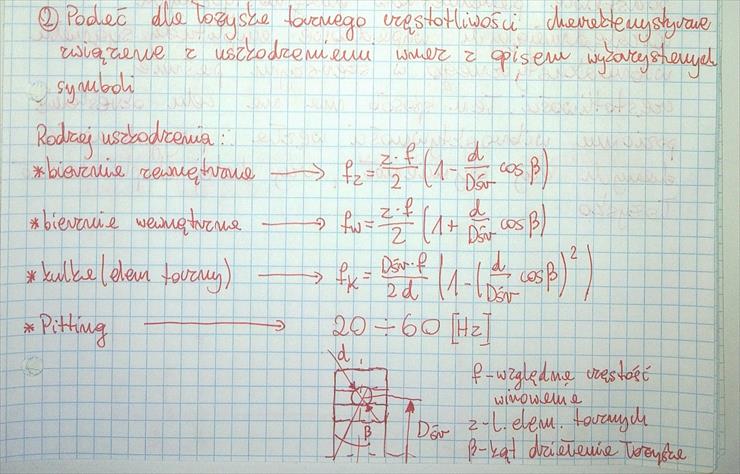 ② Podać dla łożyska tocznego częstotliwości charakterystyczne
związane z uszkodzeniami wraz z opisem wykorzystanych
symboli
Rodzaj uszkodzenia:
* bieżnia zewnętrzna → fz = z·f/2 (1 - d/Dśr cosβ)
* bieżnia wewnętrzna → fw = z·f/2 (1 + d/Dśr cosβ)
* kulka (elem toczny) → fk = Dśr·f/2d (1 - (d/Dśr cosβ)²)
* Pitting → 20 ÷ 60 [Hz]
d
β
Dśr
f - względna częstość
wirowania
z - l. elem. tocznych
β - kąt działania łożyska